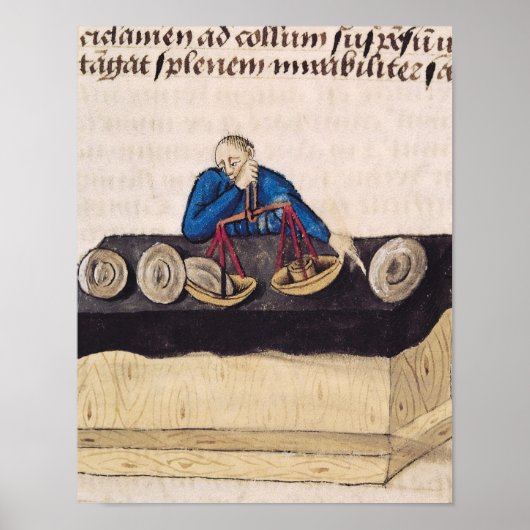 cidamen ad collum suspēsū u
tāgat splenem mirabiliter sa